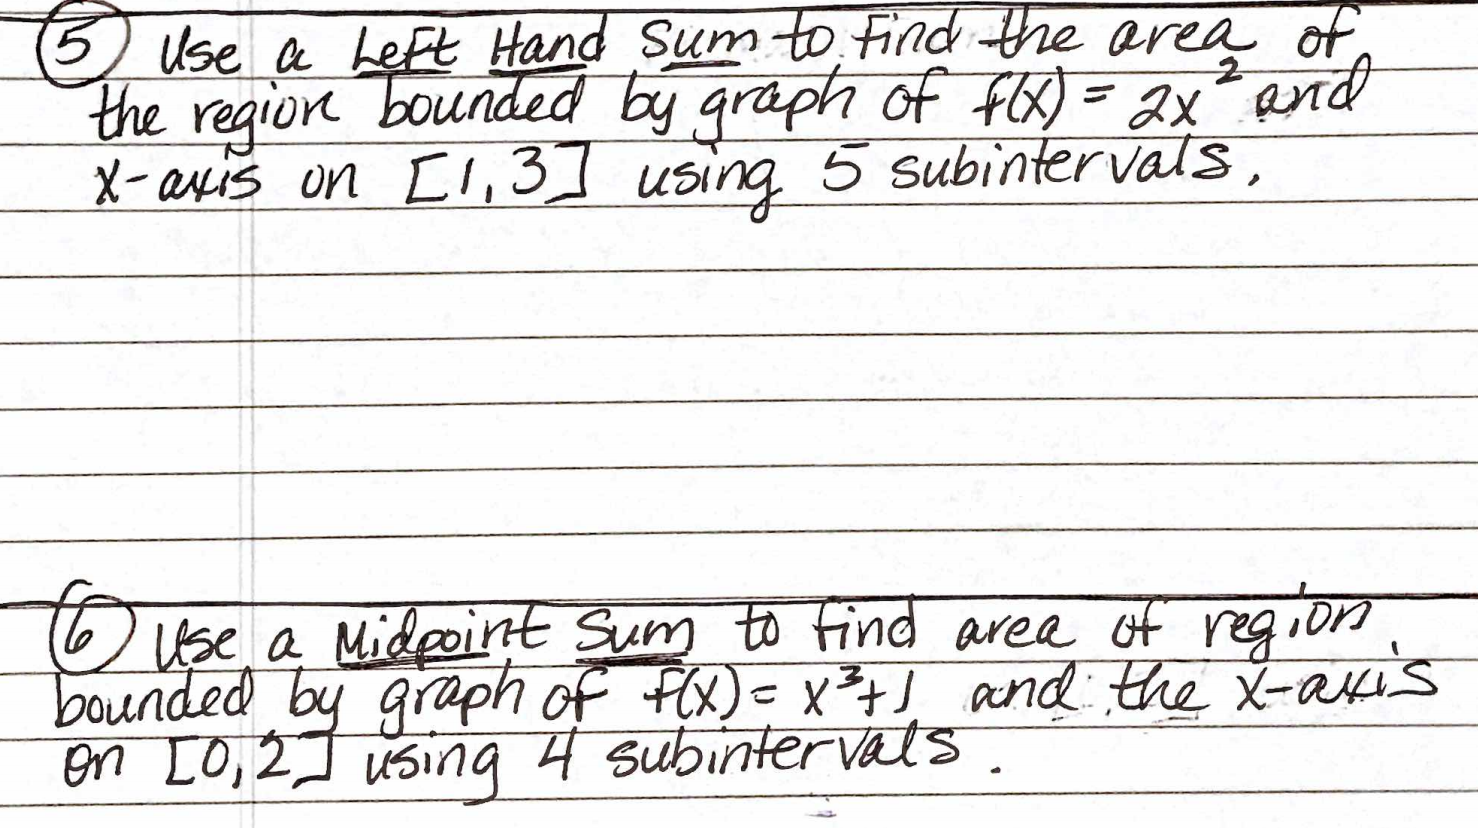 ⑤ Use a Left Hand Sum to find the area of
the region bounded by graph of f(x) = 2x² and
x-axis on [1,3] using 5 subintervals.
⑥ Use a Midpoint Sum to find area of region
bounded by graph of f(x) = x³+1 and the x-axis
on [0,2] using 4 subintervals.